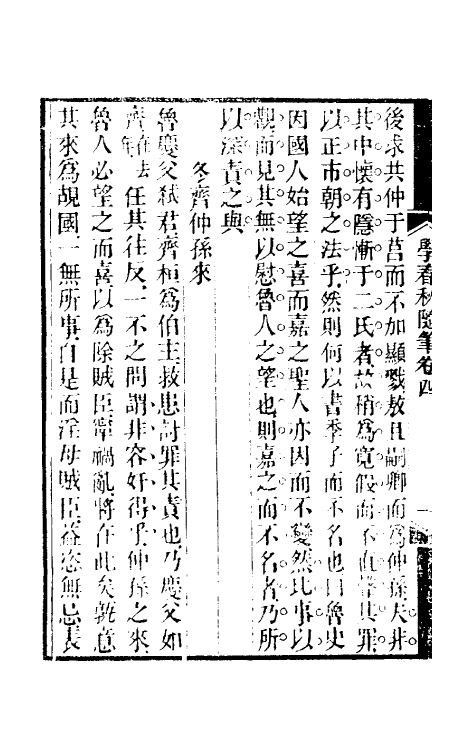 學春秋隨筆卷四
後求共仲于莒而不加顯戮敖且嗣卿而為仲孫夫非
其中懷有隱慚于二氏者故稍為寬假而不直聲其罪
以正市朝之法乎然則何以書季子而不名也曰魯史
因國人始望之喜而嘉之聖人亦因而不變然比事以
觀而見其無以慰魯人之望也則嘉之而不名者乃所
以深責之與
冬齊仲孫來
魯慶父弒君齊桓為伯主救患討罪其責也乃慶父如
齊任其往反一不之問謂非容奸得乎仲孫之來
魯人必望之而喜以為除賊臣甯禍亂將在此矣孰意
其來為覘國一無所事自是而淫母賊臣益恣無忌長